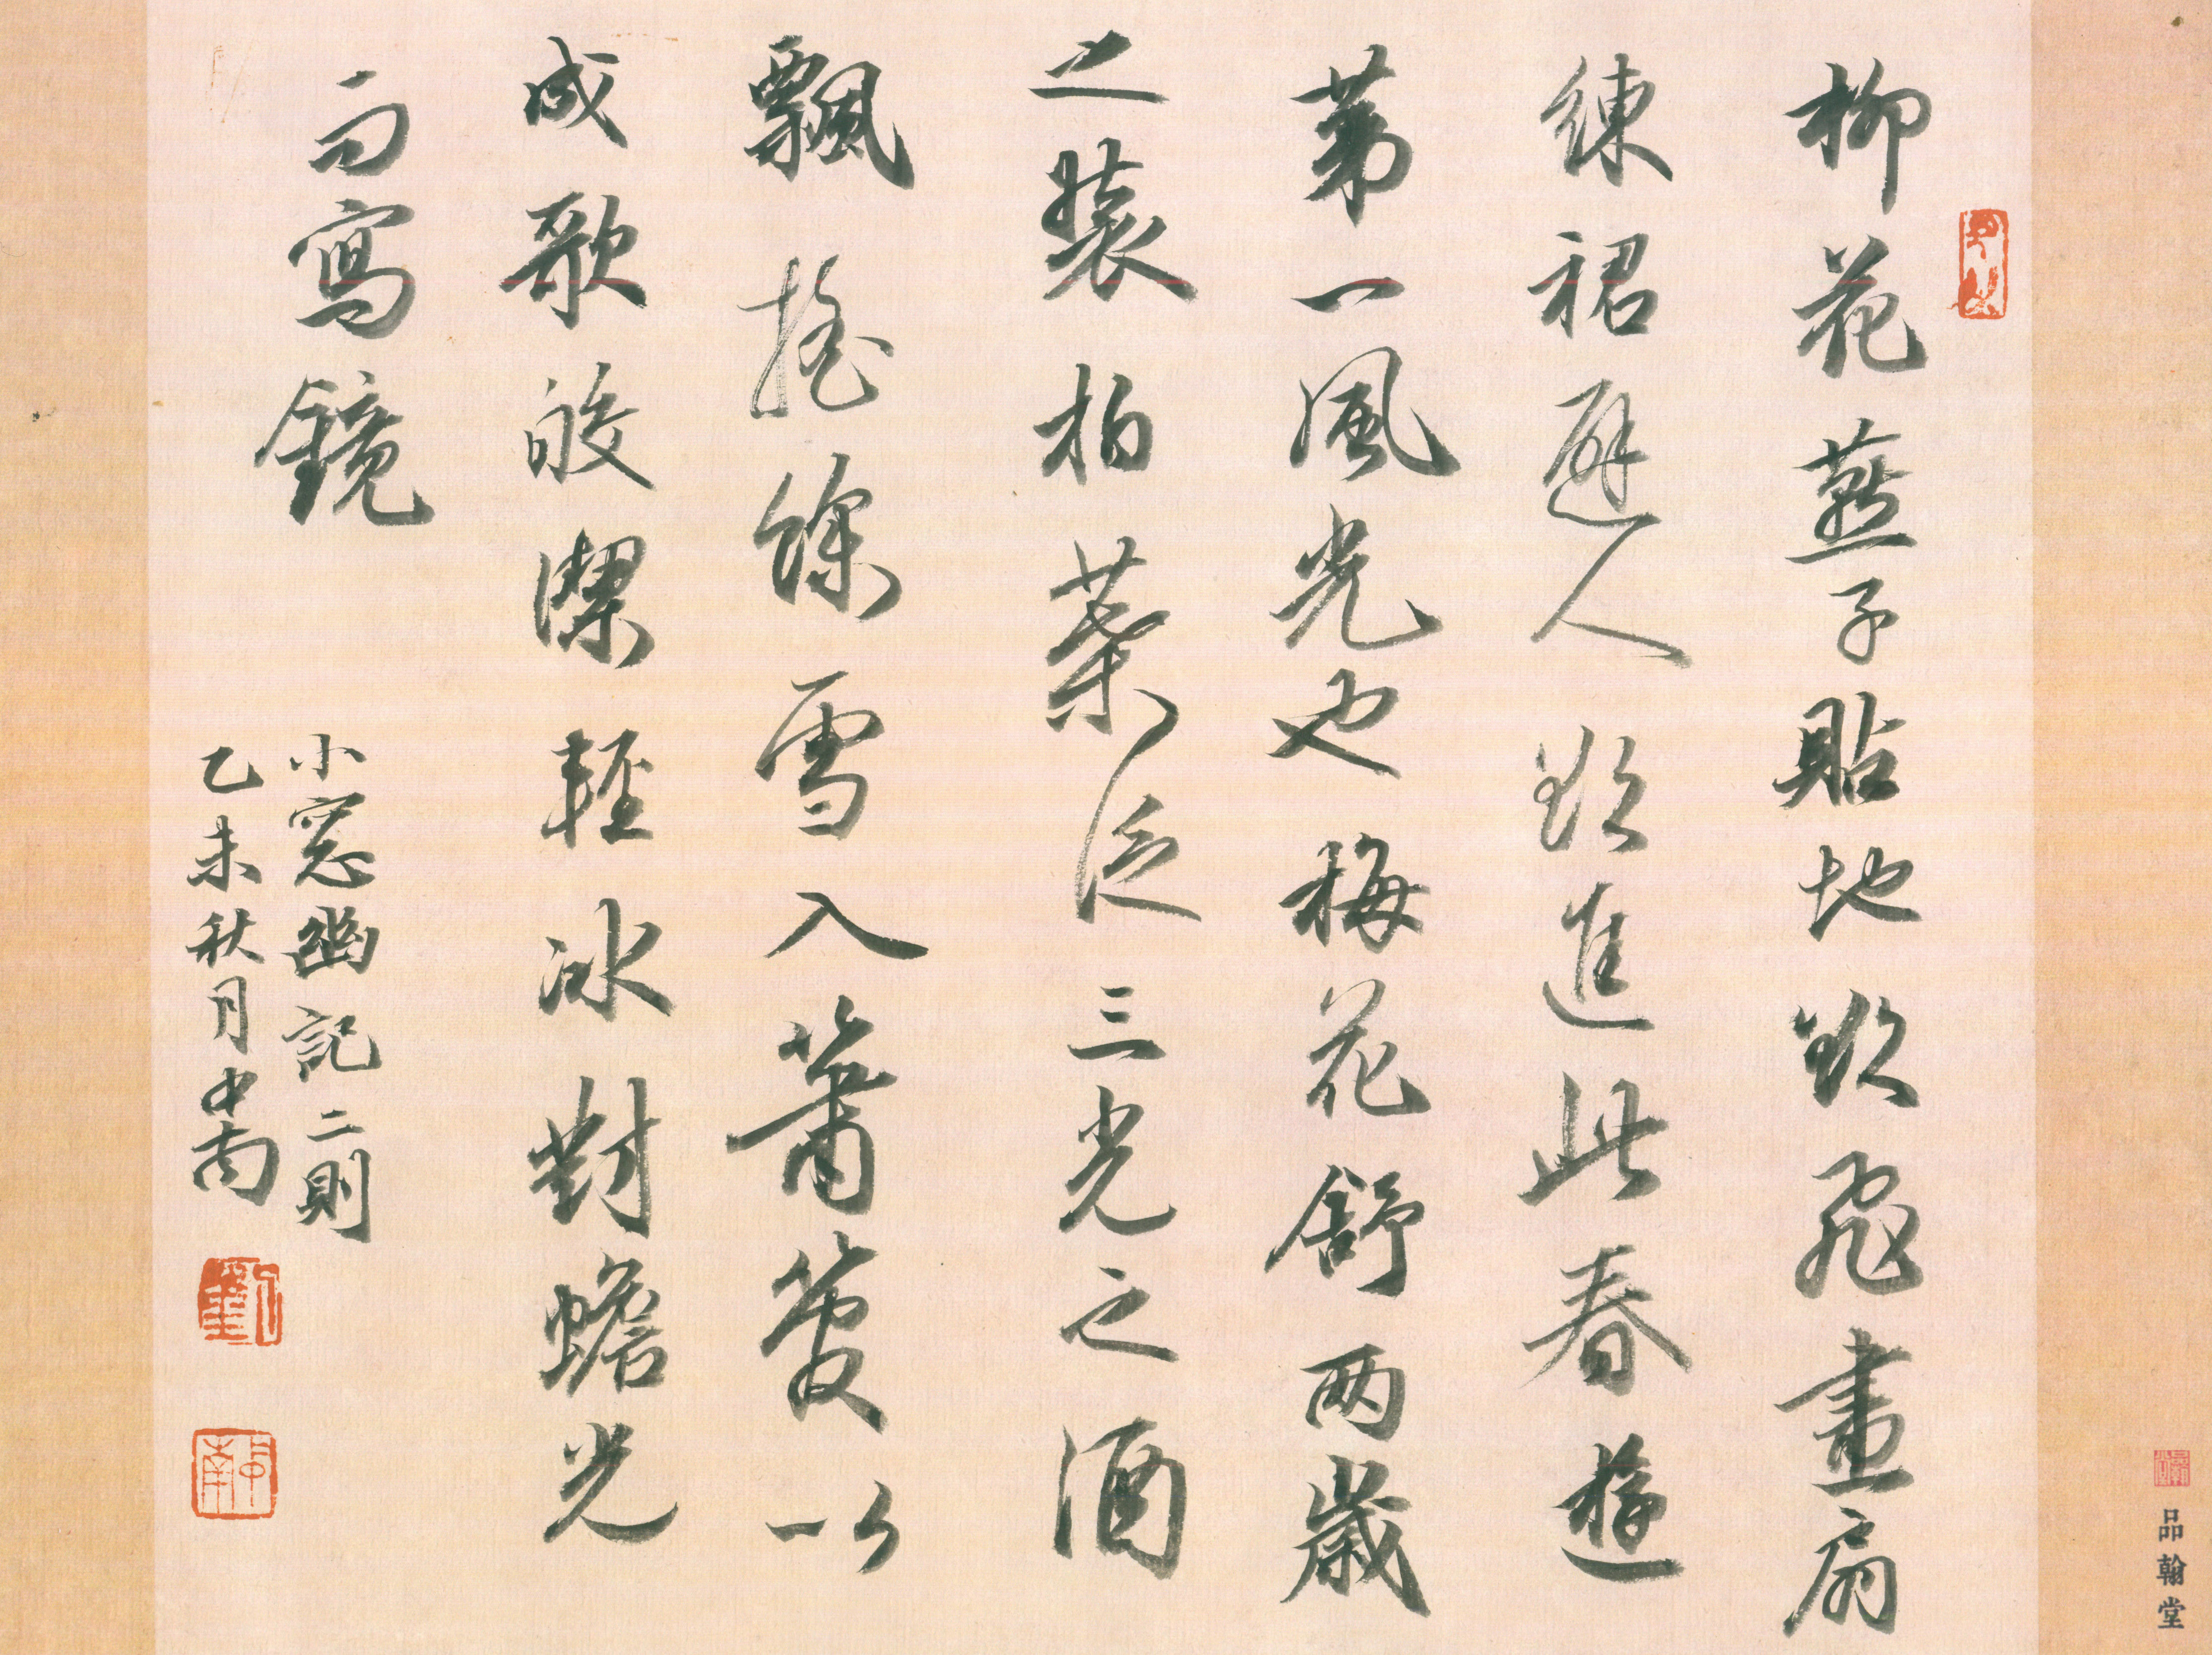 柳花燕子貼地欲飛畫扇
練裙避人欲進此春遊
第一風光也梅花舒兩歲
之裝柏葉泛三光之酒
飄搖餘雪入簫管以
成歌皎潔輕冰對蟾光
而寫鏡
小窓幽記二則
乙未秋月中南
品翰堂